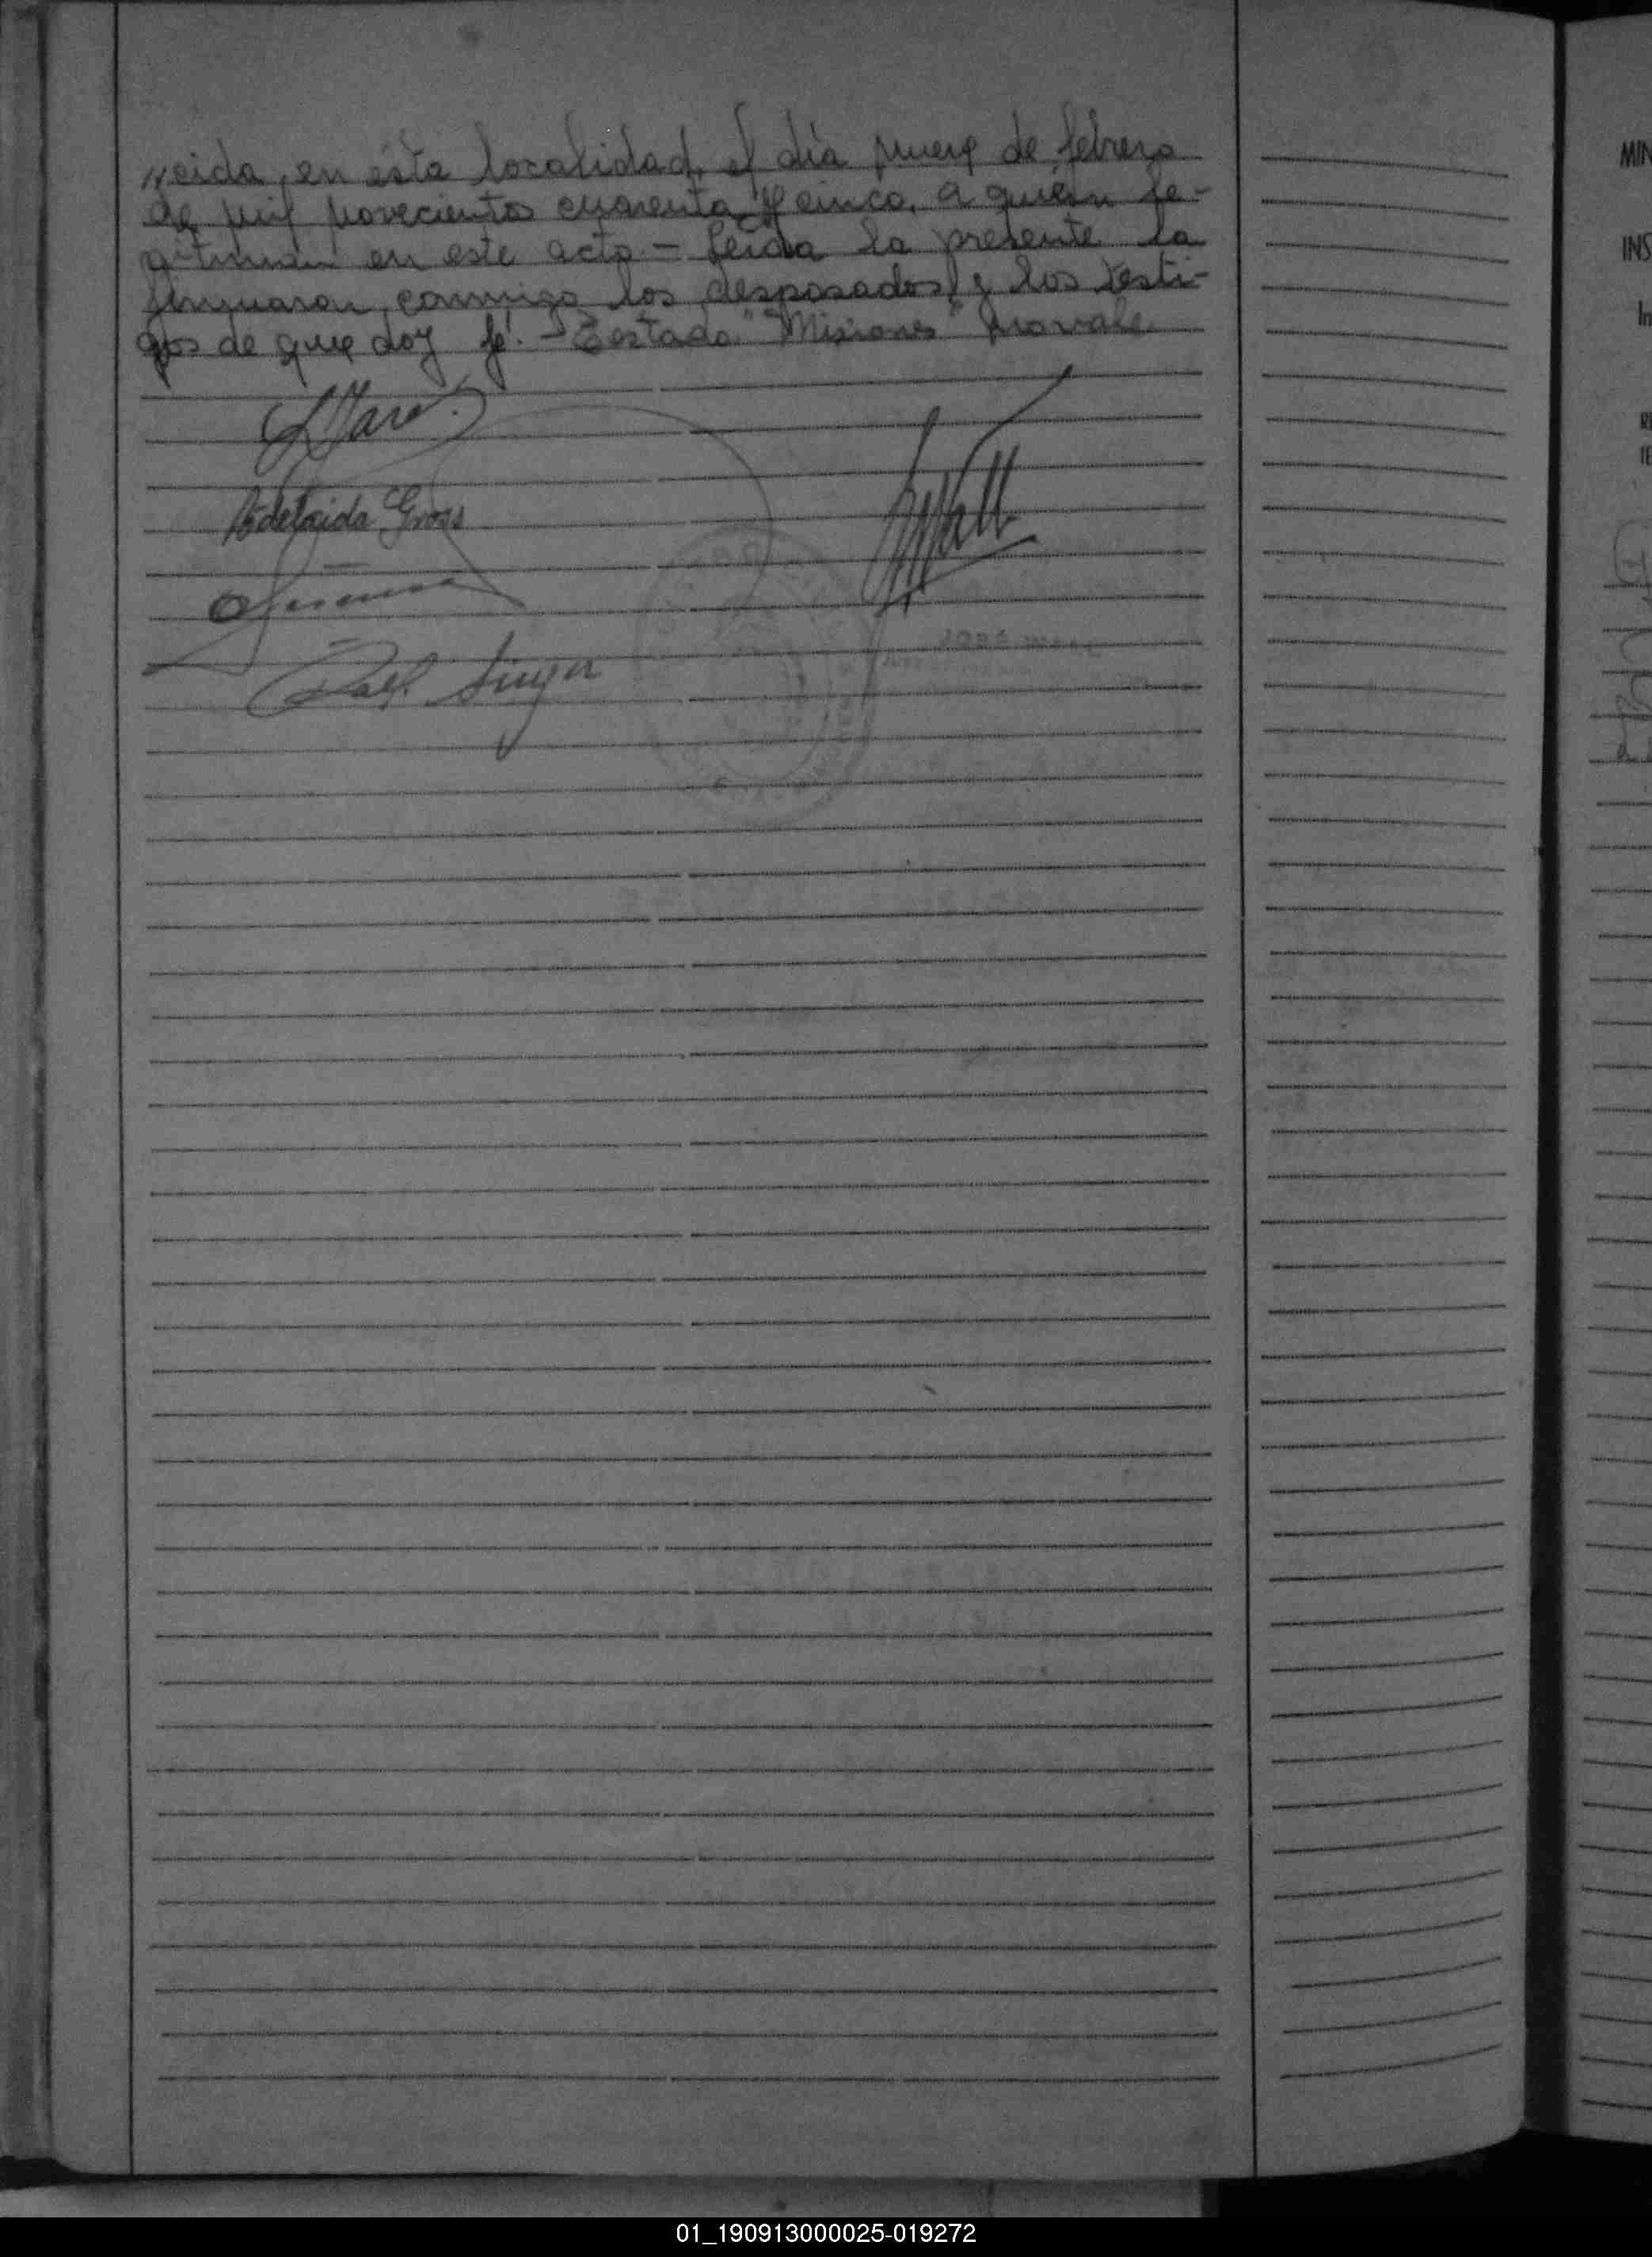 neida, en ésta localidad, el día nueve de febrero
de mil novecientos cuarenta y cinco, a quién le-
gitiman en este acto.- Leída la presente la
firmaron conmigo los desposados y los testi-
gos de que doy fé.- Testado: "Misiones" no vale.
Adelaida Gross
Singer
MIN
INS
In
01_190913000025-019272